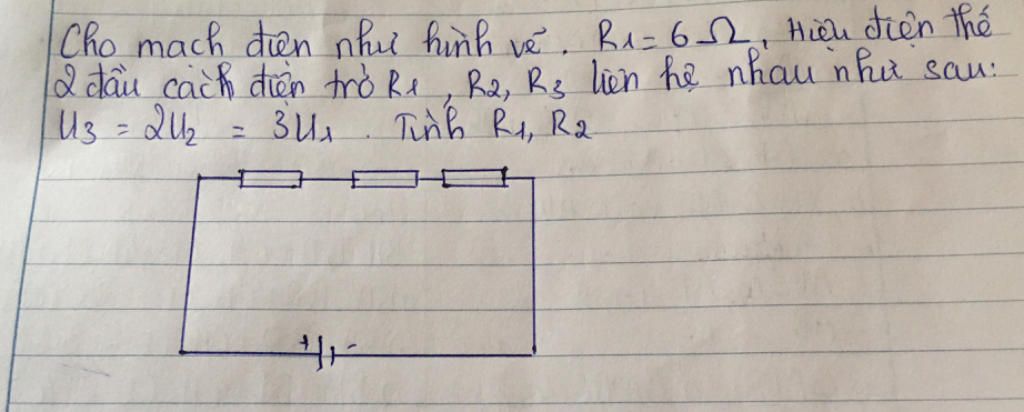 Cho mạch điện như hình vẽ. R1 = 6 Ω, Hiệu điện thế
2 đầu các điện trở R1, R2, R3 liên hệ nhau như sau:
U3 = 2U2 = 3U1. Tính R1, R2
+ -